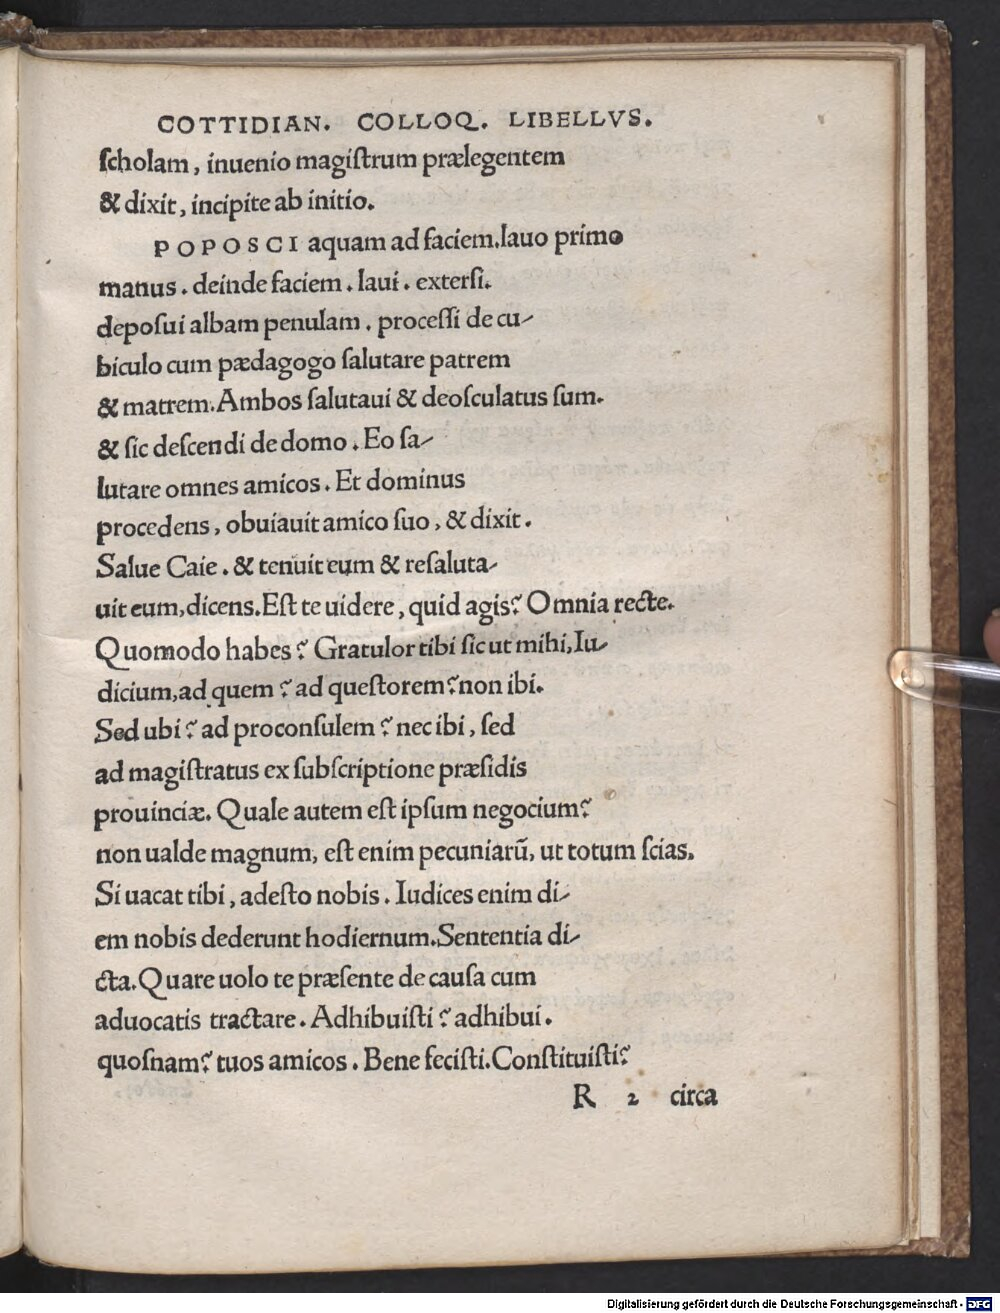 COTTIDIAN. COLLOQ. LIBELLVS.
ſcholam, inuenio magiſtrum prælegentem
& dixit, incipite ab initio.
POPOSCI aquam ad faciem.lauo primo
manus. deinde faciem. laui. exterſi.
depoſui albam penulam. proceſſi de cu-
biculo cum pædagogo ſalutare patrem
& matrem.Ambos ſalutaui & deoſculatus ſum.
& ſic deſcendi de domo. Eo ſa-
lutare omnes amicos. Et dominus
procedens, obuiauit amico ſuo, & dixit.
Salue Caie. & tenuit eum & reſaluta-
uit eum,dicens.Eſt te uidere, quid agis? Omnia recte.
Quomodo habes? Gratulor tibi ſic ut mihi,Iu-
dicium,ad quem? ad queſtorem?non ibi.
Sed ubi? ad proconſulem? nec ibi, ſed
ad magiſtratus ex ſubſcriptione præſidis
prouinciæ. Quale autem eſt ipſum negocium?
non ualde magnum, eſt enim pecuniarū, ut totum ſcias.
Si uacat tibi, adeſto nobis. Iudices enim di-
em nobis dederunt hodiernum.Sententia di-
cta.Quare uolo te præſente de cauſa cum
aduocatis tractare. Adhibuiſti? adhibui.
quoſnam? tuos amicos. Bene feciſti.Conſtituiſti?
R 2 circa
Digitalisierung gefördert durch die Deutsche Forschungsgemeinschaft - DFG